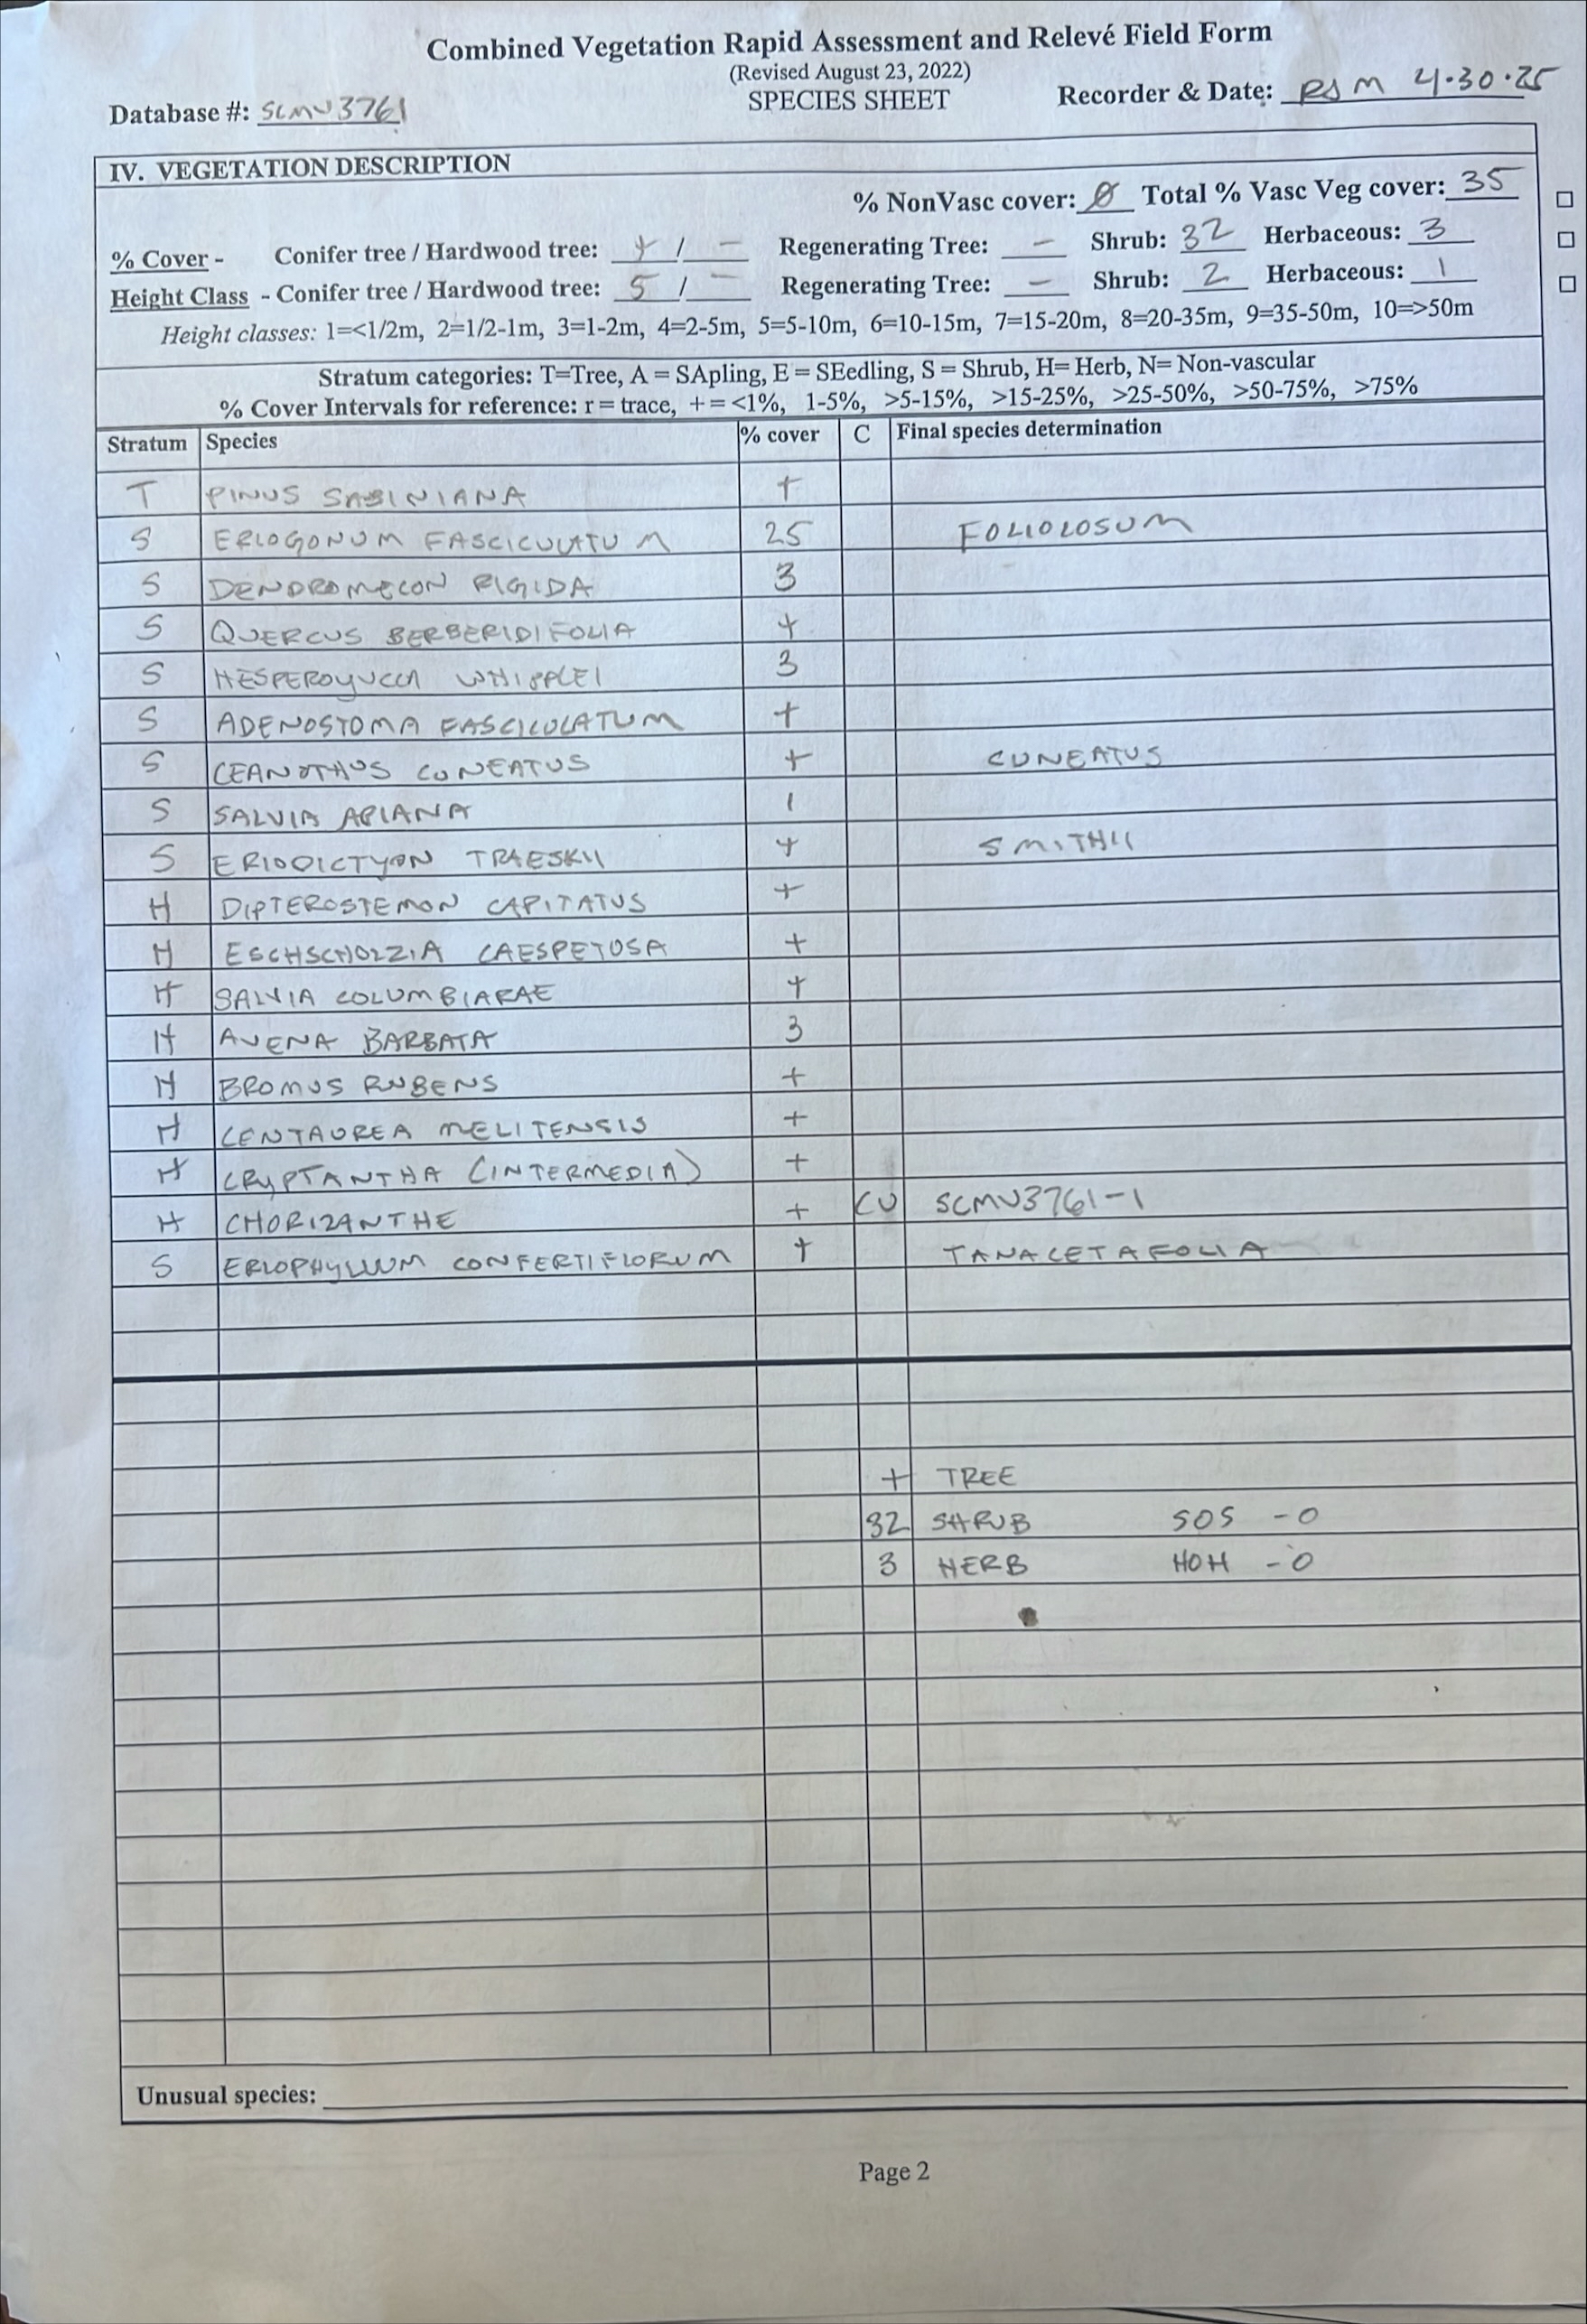 Combined Vegetation Rapid Assessment and Relevé Field Form
(Revised August 23, 2022)
SPECIES SHEET
Database #: SCMV3761
Recorder & Date: RSM 4.30.25
IV. VEGETATION DESCRIPTION
% NonVasc cover: Ø Total % Vasc Veg cover: 35
% Cover - Conifer tree / Hardwood tree: + / — Regenerating Tree: — Shrub: 32 Herbaceous: 3
Height Class - Conifer tree / Hardwood tree: 5 / — Regenerating Tree: — Shrub: 2 Herbaceous: 1
Height classes: 1=<1/2m, 2=1/2-1m, 3=1-2m, 4=2-5m, 5=5-10m, 6=10-15m, 7=15-20m, 8=20-35m, 9=35-50m, 10=>50m
Stratum categories: T=Tree, A = SApling, E = SEedling, S = Shrub, H= Herb, N= Non-vascular
% Cover Intervals for reference: r = trace, + = <1%, 1-5%, >5-15%, >15-25%, >25-50%, >50-75%, >75%
Stratum Species % cover C Final species determination
T PINUS SABINIANA +
S ERIOGONUM FASCICULATUM 25 FOLIOLOSUM
S DENDROMECON RIGIDA 3
S QUERCUS BERBERIDIFOLIA +
S HESPEROYUCCA WHIPPLEI 3
S ADENOSTOMA FASCICULATUM +
S CEANOTHUS CUNEATUS + CUNEATUS
S SALVIA APIANA 1
S ERIODICTYON TRAESKII + SMITHII
H DIPTEROSTEMON CAPITATUS +
H ESCHSCHOLZZIA CAESPETOSA +
H SALVIA COLUMBIARAE +
H AVENA BARBATA 3
H BROMUS RUBENS +
H CENTAUREA MELITENSIS +
H CRYPTANTHA (INTERMEDIA) +
H CHORIZANTHE + CU SCMV3761-1
S ERIOPHYLLUM CONFERTIFLORUM + TANACETAFOLIA
+ TREE
32 SHRUB SOS - 0
3 HERB HOH - 0
Unusual species:
Page 2